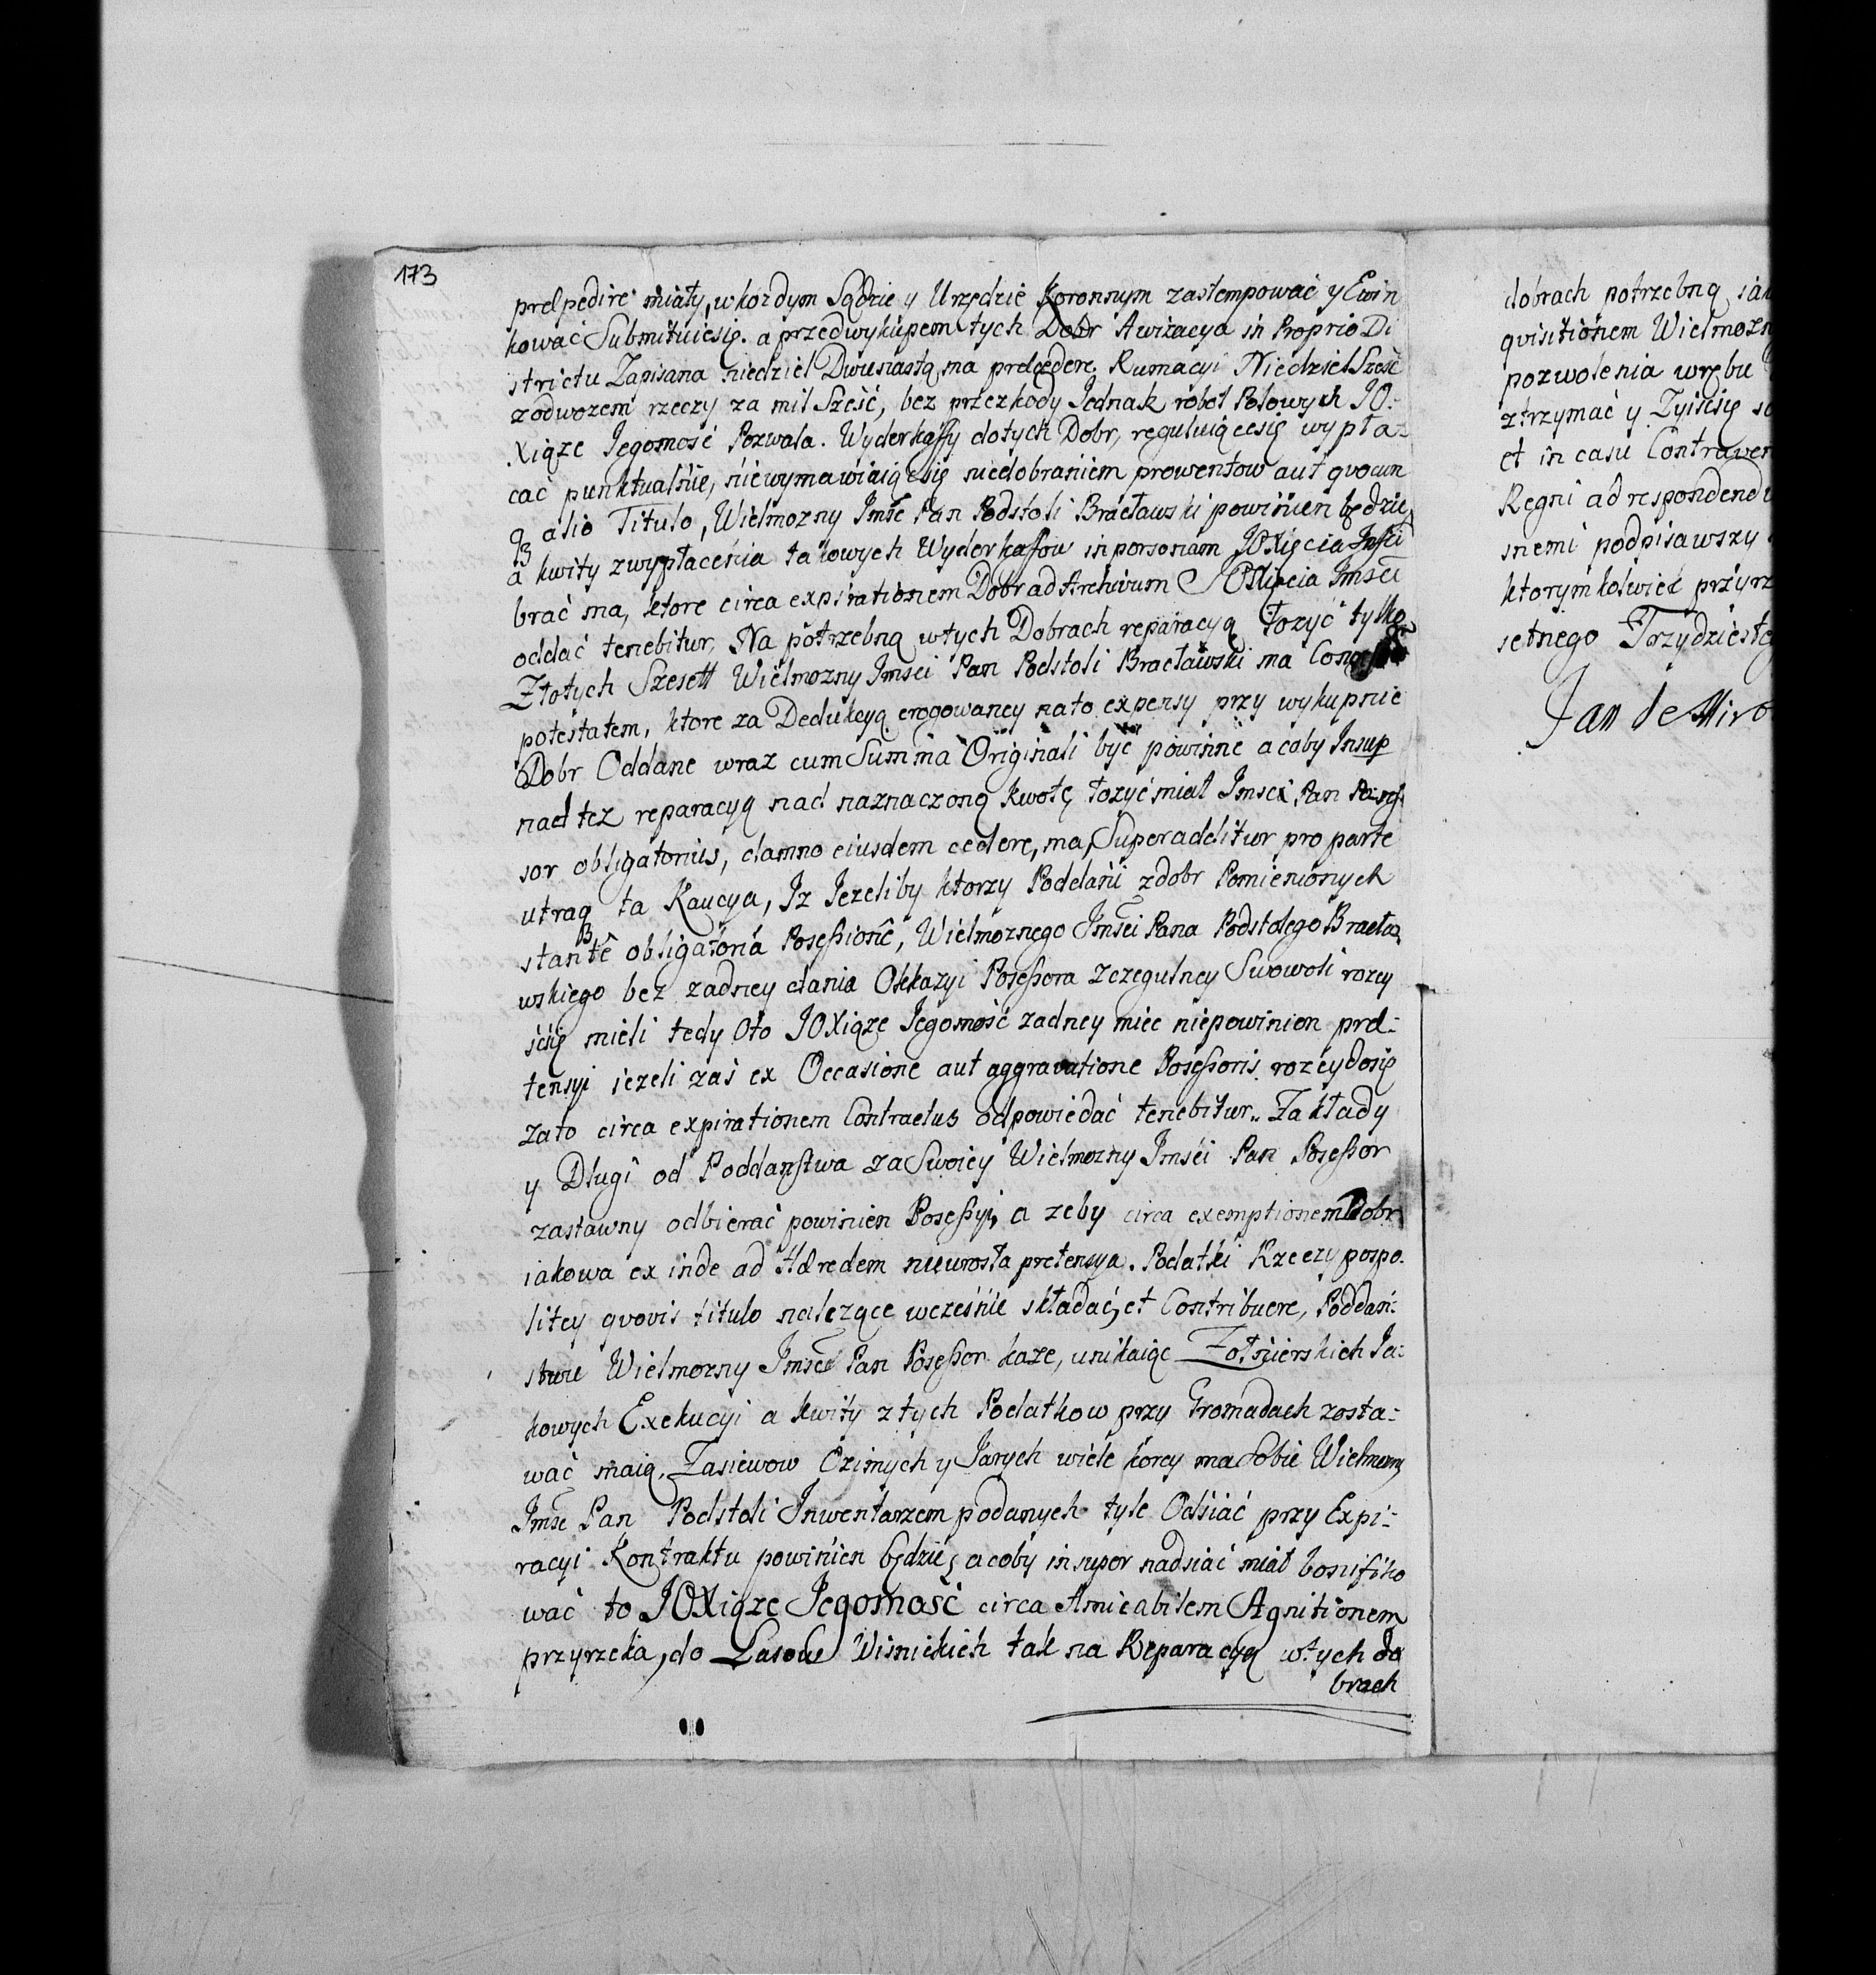 173
prelpedire miały, w kozdym Sądzie y Urzędzie Koronnym zastempować y Ewin
kować Submituiesię. a przedwykupem tych Dobr Awizacya in Proprio Di
strictu Zapisana niedziel Dwunastą ma precedere. Rumacyi Niedziel Sześć
zodwozem rzeczy za mil Sześć, bez przezkody Jednak robot Polowych JO.
Xiąze Jegomość Pozwala. Wyderkaffy dotych Dobr, reguluiącesię wypła-
cać punktualnie, niewymawiaiącsię niedobraniem prowentow aut qvocun
q alio Titulo, Wielmozny Imsc Pan Podstoli Bracławski powinien będzie,
a kwity zwypłacenia takowych Wyderkaffow in personam JOXięcia Imści
brać ma, ktore circa expirationem Dobr ad Archivum JOXięcia Imści
oddać tenebitur, Na potrzebną wtych Dobrach reparacyą Łozyć tylko
Złotych Szesett Wielmozny Imsci Pan Podstoli Bracławski ma
potestatem, ktore za Dedukcyą erogowaney nato expensy przy wykupnie
Dobr Oddane wraz cum Summa Originali być powinne acoby Insup
nad tez reparacyą nad naznaczoną kwotę łozyć miał Imsci Pan
sor obligatorius, damno eiusdem cedere, ma, Superadditur pro parte
utraq ta Kaucya, Iz Iezeliby ktorzy Poddani zdobr Pomienionych
stante obligatoria Posessione, Wielmoznego Imsci Pana Podstolego Bracła
wskiego bez zadney dania Okkazyi Posessora zczegulney Swowoli rozey
ścsię mieli tedy Oto JOXiąze Jegomość zadney miec niepowinien pre-
tensyi iezeli zaś ex Occasione aut aggravatione Posessoris rozeydosię
zato circa expirationem Contractus odpowiedać tenebitur. Zakłady
y Długi od Poddaństwa za Swoiey Wielmozny Imsci Pan Posessor
zastawny odbierać powinien Posessyi, a zeby circa exemptionem Dobr
iakowa ex inde ad Hæredem nieurosła pretensya. Podatki Rzeczypospo-
litey qvovis titulo nalezące wcześnie składać, et Contribuere, Poddań-
stwu Wielmozny Imsci Pan Posessor kaze, unikaiąc Zołnierskich Ja-
kowych Exekucyi a kwity ztych Podatkow przy Gromadach zosta-
wać maią. Zasiewow Ozimych y Jarych wiele korcy ma Sobie Wielmozny
Imsc Pan Podstoli Inwentarzem podanych tyle Odsiać przy Expi-
racyi Kontraktu powinien będzie, acoby insuper nadsiać miał bonifiko
wać to JOXiąze Jegomość circa Amicabilem Agnitionem
przyrzeka, do Lasow Wisnickich tak na Reparacyą wtych do
brach
dobrach potrzebną
qvisitionem
pozwolenia wrębu
ztrzymać y Zyiscsię
et in casu
Regni ad
snemi podpisawszy
ktorymkolwiek
setnego
Jan de